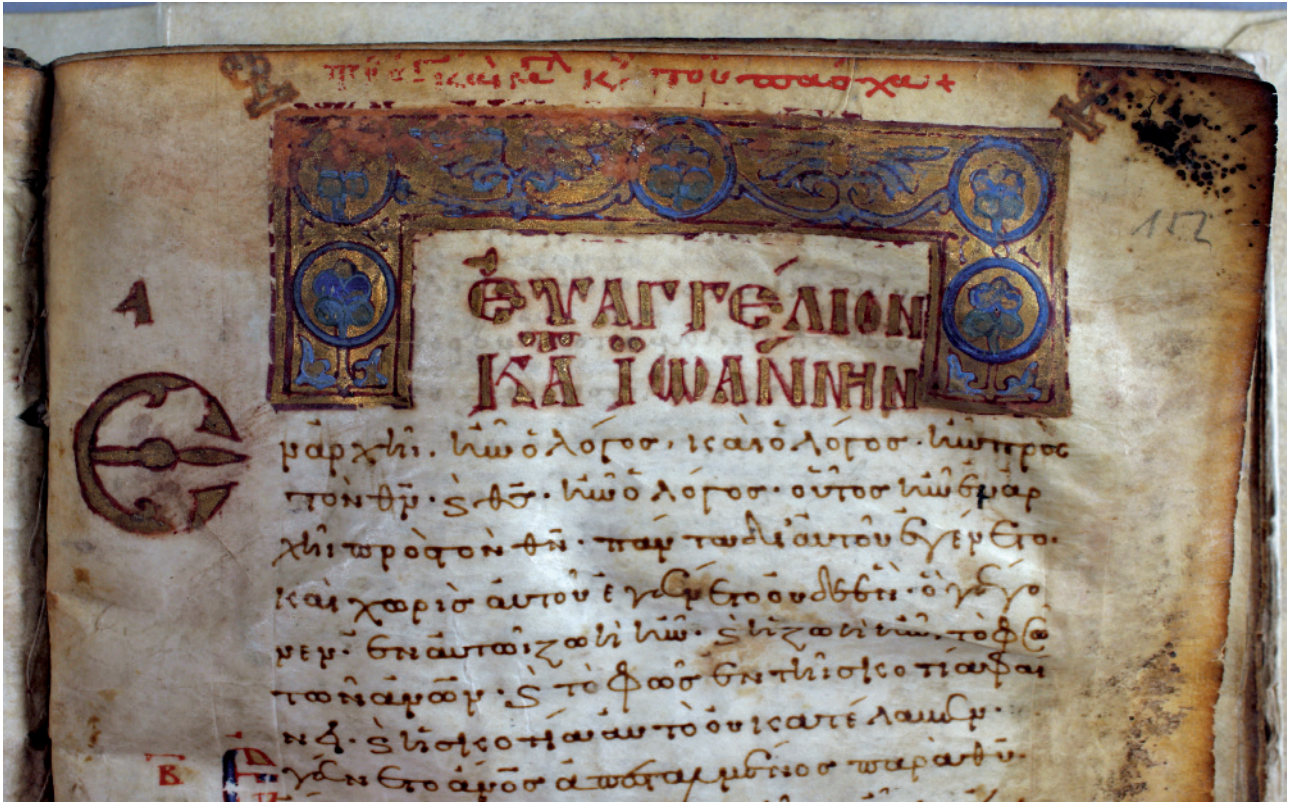 152
ἐυαγγέλιον
κατὰ ϊωάννην
Α
Ἐν ἀρχῆι. ἦν ὁ λόγος, καὶ ὁ λόγος. ἦν προς
τὸν θν̅. ϗ θς̅. ἦν ὁ λόγος. οὗτος ἦν ἐν ἀρ
χῆι πρὸς τὸν θν̅. πάντα δι ἀυτοῦ ἐγένετο.
καὶ χωρὶς ἀυτοῦ ἐγένετο ὀυδὲ ἓν. ὃ γέγο
νεν. ἐν ἀυτῶι ζωὴ ἦν. ϗ ἡ ζωὴ ἦν. τὸ φῶς
τῶν ἀνων̅. ϗ τὸ φῶς ἐν τῆι σκοτία φαί
νει. ϗ ἡ σκοτία ἀυτὸ ὀυ κατέλαβεν.
Β
Ἐγένετο ἀνος̅ ἀπεσταλμένος παρὰ θυ̅.